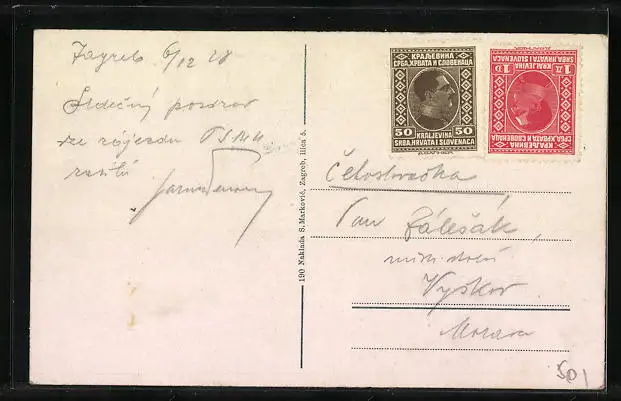 Zagreb 6/12 28
Srdečný pozdrav
ze zájezdu
zasílá
190 Naklada S. Marković, Zagreb, Ilica 5.
КРАЉЕВИНА
СРБА, ХРВАТА И СЛОВЕНАЦА
50 50
KRALJEVINA
SRBA, HRVATA I SLOVENACA
1 Д 1 D
KRALJEVINA
SRBA, HRVATA I SLOVENACA
КРАЉЕВИНА
СРБА, ХРВАТА И СЛОВЕНАЦА
Pan Zálešák,
Vyškov
Morava
50